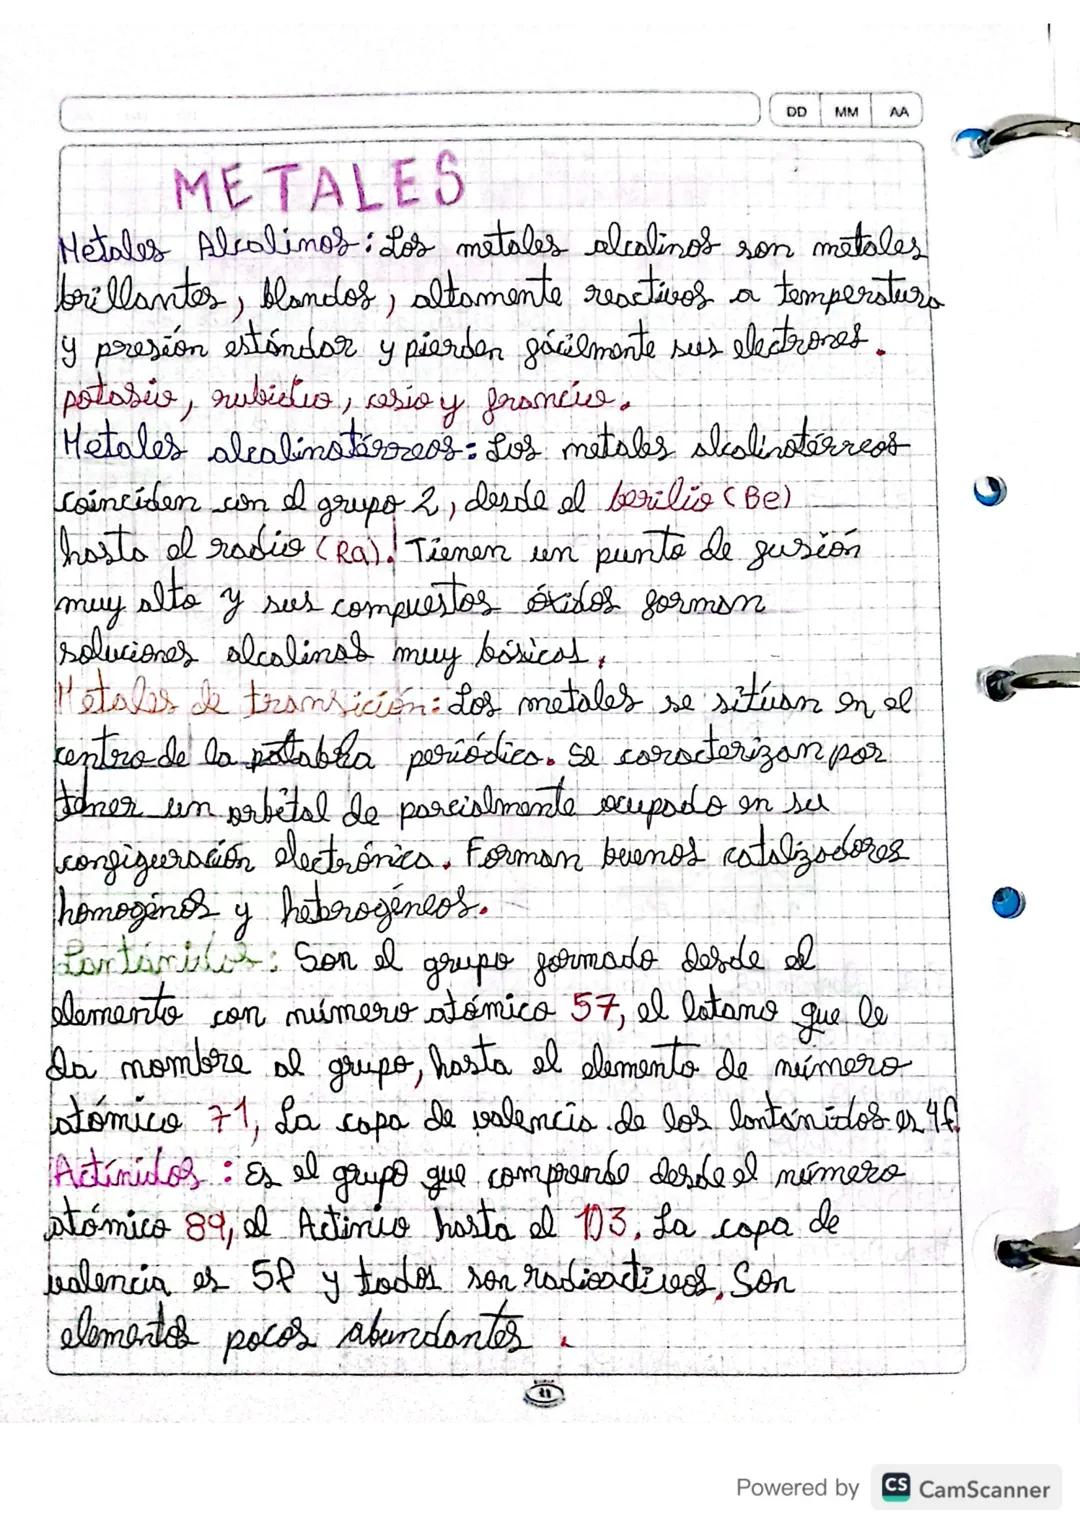 DD MM AA
METALES
Metales Alcalinos: Los metales alcalinos son metales
brillantes, blandos, altamente reactivos a temperatura
y presión estándar y pierden fácilmente sus electrones.
potasio, rubidio, cesio y francio.
Metales alcalinotérreos: Los metales alcalinotérreos
coinciden con el grupo 2, desde el berilio (Be)
hasta el radio (Ra). Tienen un punto de fusión
muy alto y sus compuestos óxidos forman
soluciones alcalinas muy básicas.
Metales de transición: Los metales se sitúan en el
centro de la periódica. Se caracterizan por
tener un orbital de parcialmente ocupado en su
configuración electrónica. Forman buenos catalizadores
homogénos y hetrogéneos.
Lantánidos: Son el grupo formado desde el
elemento con número atómico 57, el latano que le
da nombre al grupo, hasta el elemento de número
atómico 71, La capa de valencia de los lantánidos es 4f.
Actínidos: Es el grupo que comprende desde el número
atómico 89, el Actinio hasta el 103. La capa de
valencia es 5f y todos son radioactivos. Son
elementos pocos abundantes.
Powered by CS CamScanner